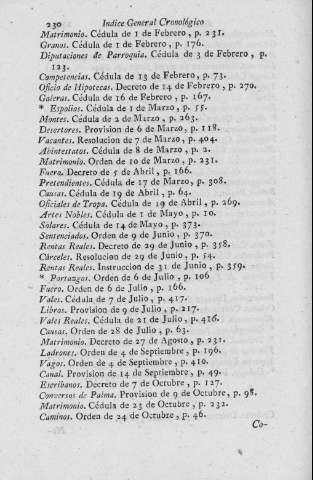 230 Indice General Cronológico
Matrimonio. Cédula de 1 de Febrero, p. 231.
Granos. Cédula de 1 de Febrero, p. 176.
Diputaciones de Parroquia. Cédula de 3 de Febrero, p.
123.
Competencias. Cédula de 13 de Febrero, p. 73.
Oficio de Hipotecas. Decreto de 14 de Febrero, p. 270.
Galeras. Cédula de 16 de Febrero, p. 167.
* Espolios. Cédula de 1 de Marzo, p. 55.
Montes. Cédula de 2 de Marzo, p. 263.
Desertores. Provision de 6 de Marzo, p. 118.
Vacantes. Resolucion de 7 de Marzo, p. 404.
Abintestatos. Cédula de 8 de Marzo, p. 2.
Matrimonio. Orden de 10 de Marzo, p. 231.
Fuero. Decreto de 5 de Abril, p. 166.
Pretendientes. Cédula de 17 de Marzo, p. 308.
Causas. Cédula de 19 de Abril, p. 64.
Oficiales de Tropa. Cédula de 19 de Abril, p. 269.
Artes Nobles. Cédula de 1 de Mayo, p. 10.
Solares. Cédula de 14 de Mayo, p. 373.
Sentenciados. Orden de 9 de Junio, p. 370.
Rentas Reales. Decreto de 29 de Junio, p. 358.
Cárceles. Resolucion de 29 de Junio, p. 54.
Rentas Reales. Instruccion de 31 de Junio, p. 359.
* Portazgos. Orden de 6 de Julio, p. 106
Fuero. Orden de 6 de Julio, p. 166.
Vales. Cédula de 7 de Julio, p. 417.
Libros. Provision de 9 de Julio, p. 217.
Vales Reales. Cédula de 21 de Julio, p. 416.
Causas. Orden de 28 de Julio, p. 63.
Matrimonio. Decreto de 27 de Agosto, p. 231.
Ladrones. Orden de 4 de Septiembre, p. 196.
Vagos. Orden de 4 de Septiembre, p. 410.
Canal. Provision de 14 de Septiembre, p. 49.
Escribanos. Decreto de 7 de Octubre, p. 127.
Conversos de Palma. Provision de 9 de Octubre, p. 98.
Matrimonio. Cédula de 23 de Octubre, p. 232.
Caminos. Orden de 24 de Octubre, p. 46.
Co-